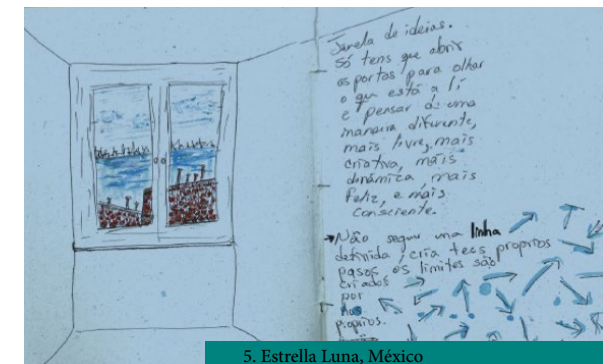 Janela de ideias.
Só tens que abrir
as portas para olhar
o que está a lí
e pensar de uma
maneira diferente,
mais livre, mais
criativa, mais
dinámica mais
feliz, e mais
consciente.
Não seguir una linha
definida, cria teus proprios
pasos os limites são
criados
por
nos
proprios.
5. Estrella Luna, México